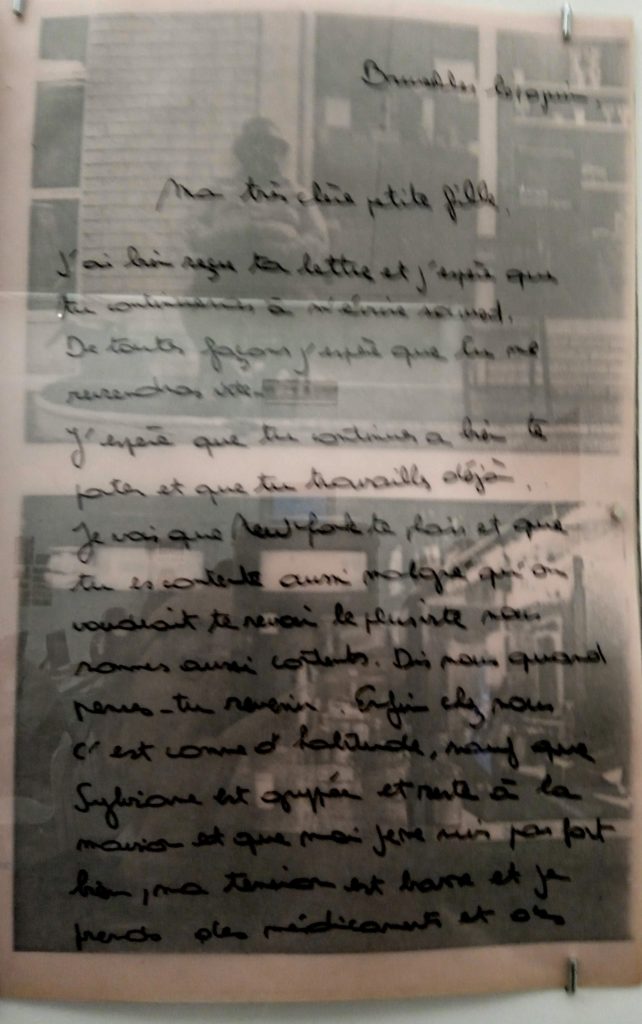 Bruxelles
Ma très chère petite fille,
J'ai bien reçue ta lettre et j'espère que
tu continueras à m'écrire souvent.
De toutes façons j'espère que tu me
reviendras vite.
J'espère que tu continues a bien te
porter et que tu travailles déjà.
Je vois que New-York te plais et que
tu es contente aussi malgré qu'on
voudrait te revoir le plus vite nous
sommes aussi contents. Dis nous quand
penses-tu revenir. Enfin chez nous
c'est comme d'habitude, sauf que
Sylviane est grippée et reste à la
maison et que moi je ne suis pas fort
bien, ma tension est basse et je
prends des médicaments et des